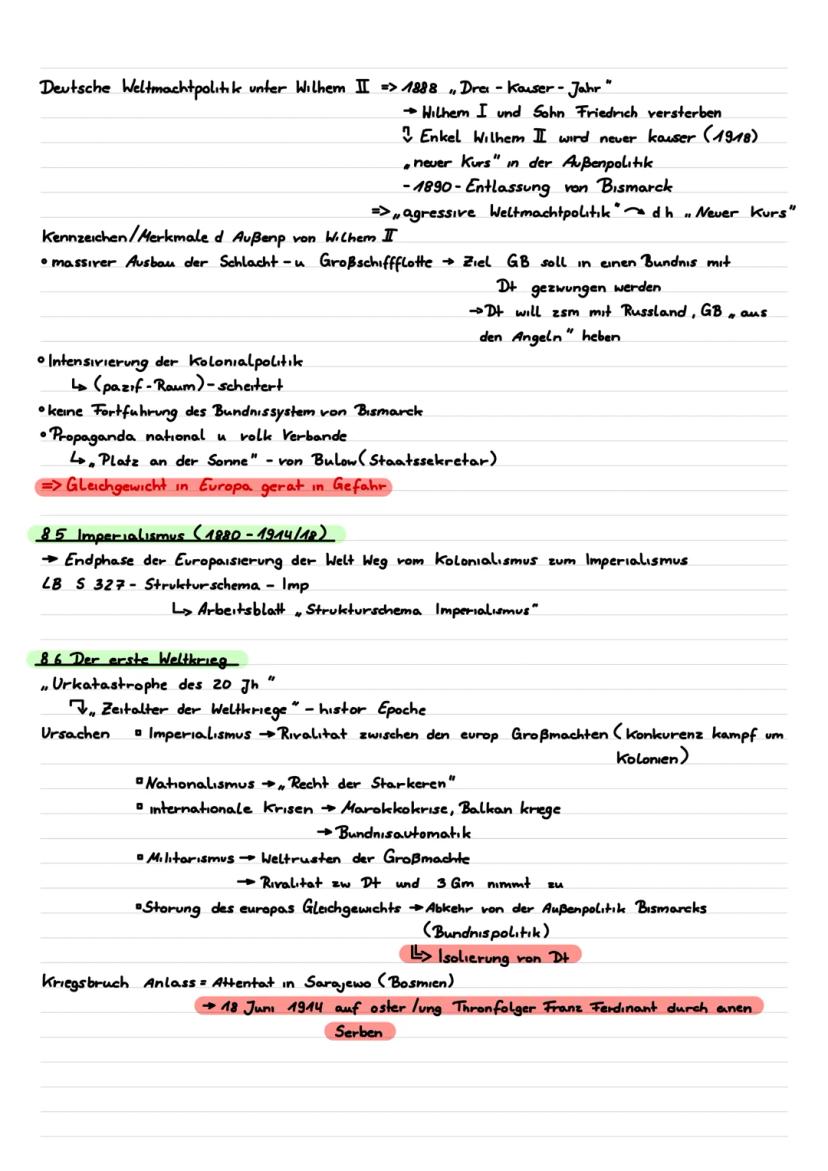 Deutsche Weltmachtpolitik unter Wilhem II => 1888 „Drei-Kaiser-Jahr"
→ Wilhem I und Sohn Friedrich versterben
↴ Enkel Wilhem II wird neuer kaiser (1918)
„neuer Kurs" in der Außenpolitik
-1890-Entlassung von Bismarck
=> „agressive Weltmachtpolitik" ↷ d h „Neuer Kurs"
Kennzeichen/Merkmale d Außenp von Wilhem II
• massiver Ausbau der Schlacht-u Großschiffflotte → Ziel GB soll in einen Bundnis mit
Dt gezwungen werden
→Dt will zsm mit Russland, GB „aus
den Angeln" heben
• Intensivierung der Kolonialpolitik
↳ (pazif-Raum)-scheitert
• keine Fortfuhrung des Bundnissystem von Bismarck
• Propaganda national u volk Verbande
↳ „Platz an der Sonne" - von Bulow (Staatssekretar)
=> Gleichgewicht in Europa gerat in Gefahr
8 5 Imperialismus (1880-1914/18)
→ Endphase der Europaisierung der Welt Weg vom Kolonialismus zum Imperialismus
LB S 327- Strukturschema - Imp
↳ Arbeitsblatt „Strukturschema Imperialismus"
8 6 Der erste Weltkrieg
„Urkatastrophe des 20 Jh "
↴ „Zeitalter der Weltkriege" - histor Epoche
Ursachen ▫ Imperialismus → Rivalitat zwischen den europ Großmachten (Konkurenz kampf um
Kolonien)
▫ Nationalismus → „Recht der Starkeren"
▫ internationale Krisen → Marokkokrise, Balkan kriege
→ Bundnisautomatik
▫ Militarismus → Weltrusten der Großmachte
→ Rivalitat zw Dt und 3 Gm nimmt zu
▫ Storung des europas Gleichgewichts → Abkehr von der Außenpolitik Bismarcks
(Bundnispolitik)
↳ Isolierung von Dt
Kriegsbruch Anlass = Attentat in Sarajewo (Bosmien)
→ 18 Juni 1914 auf oster /ung Thronfolger Franz Ferdinant durch einen
Serben